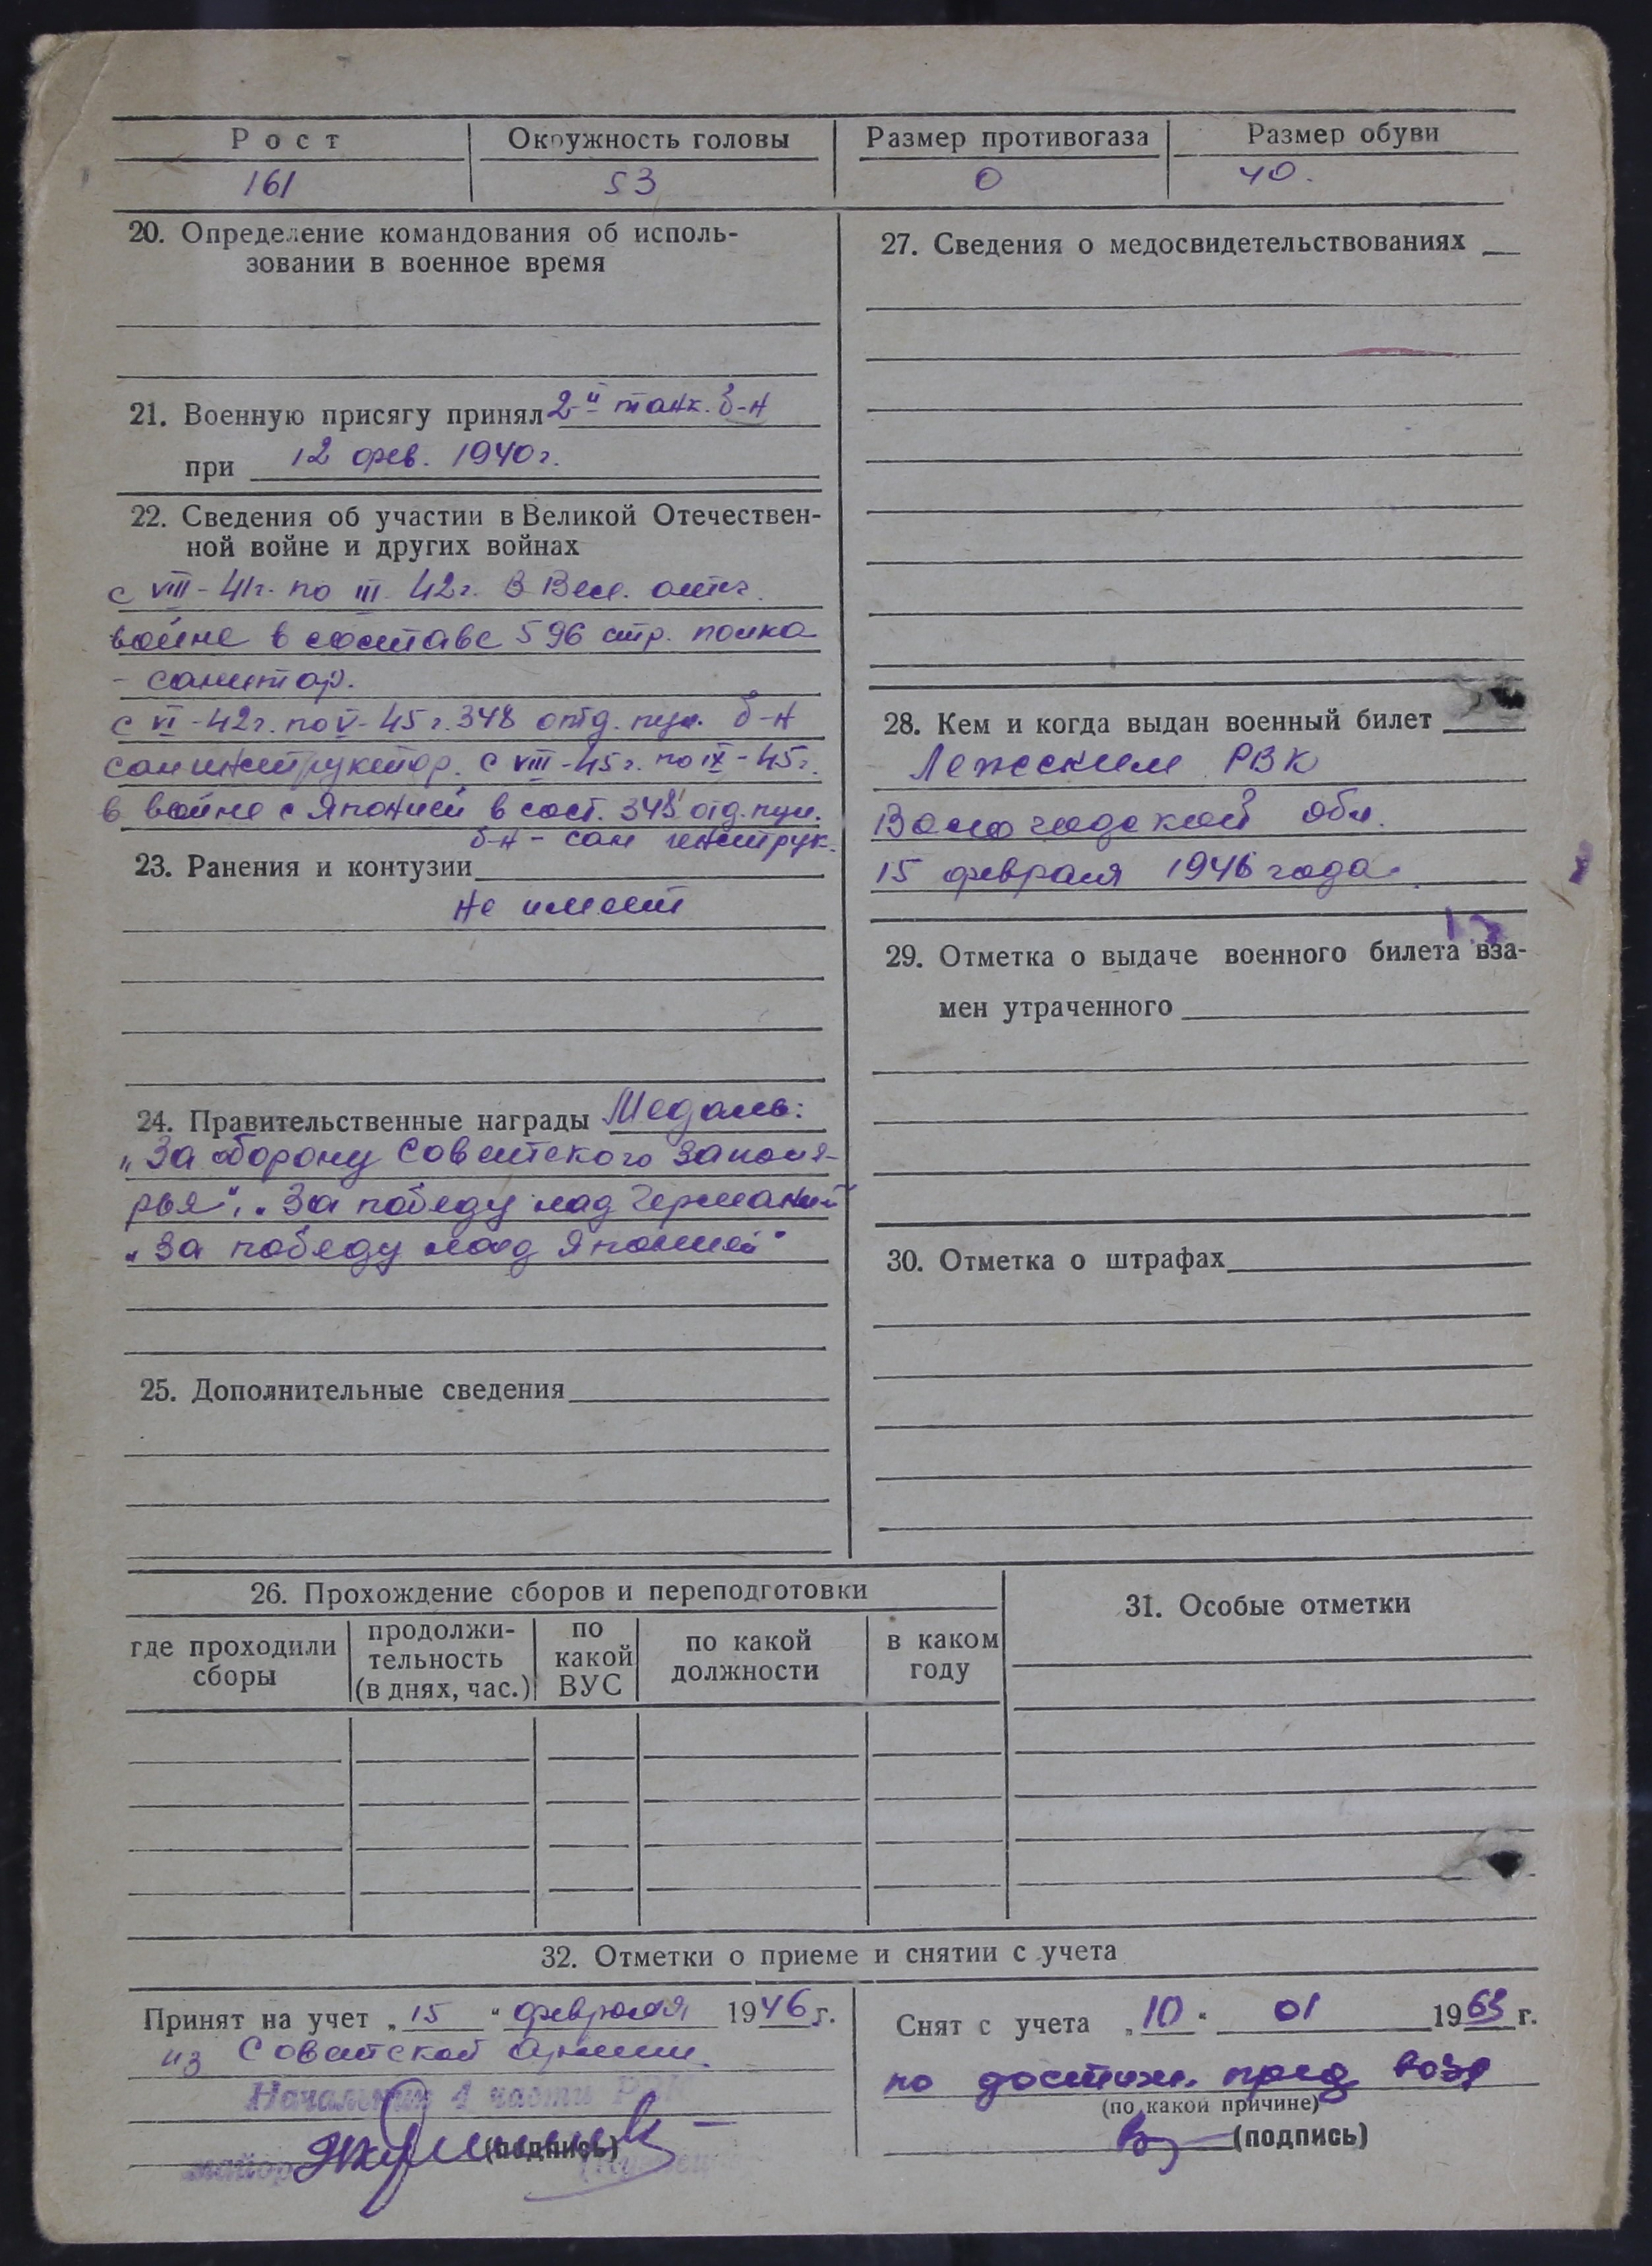 Рост Окружность головы Размер противогаза Размер обуви
161 53 0 40.
20. Определение командования об исполь-
зовании в военное время
21. Военную присягу принял 2-й танк. б-н
при 12 фев. 1940 г.
22. Сведения об участии в Великой Отечествен-
ной войне и других войнах
с VIII-41г. по III 42г. В Вел. отеч.
войне в составе 596 стр. полка
- санитар.
с VI-42г. по V-45г. 348 отд. пул. б-н
санинструктор. с VIII-45г. по IX-45г.
в войне с Японией в сост. 348 отд. пул.
б-н - сан инструк.
23. Ранения и контузии
не имеет
24. Правительственные награды Медаль:
„За оборону Советского Заполя-
рья", „За победу над Германией
„За победу над Японией"
25. Дополнительные сведения
27. Сведения о медосвидетельствованиях
28. Кем и когда выдан военный билет
Лежским РВК
Вологодской обл.
15 февраля 1946 года.
29. Отметка о выдаче военного билета вза-
мен утраченного
30. Отметка о штрафах
26. Прохождение сборов и переподготовки
где проходили сборы
продолжи-тельность (в днях, час.)
по какой ВУС
по какой должности
в каком году
31. Особые отметки
32. Отметки о приеме и снятии с учета
Принят на учет „15" февраля 1946 г.
из Советской Армии.
Начальник 1 части РВК
майор
(подпись)
Снят с учета „10" 01 1963 г.
по достиж. пред возр
(по какой причине)
(подпись)